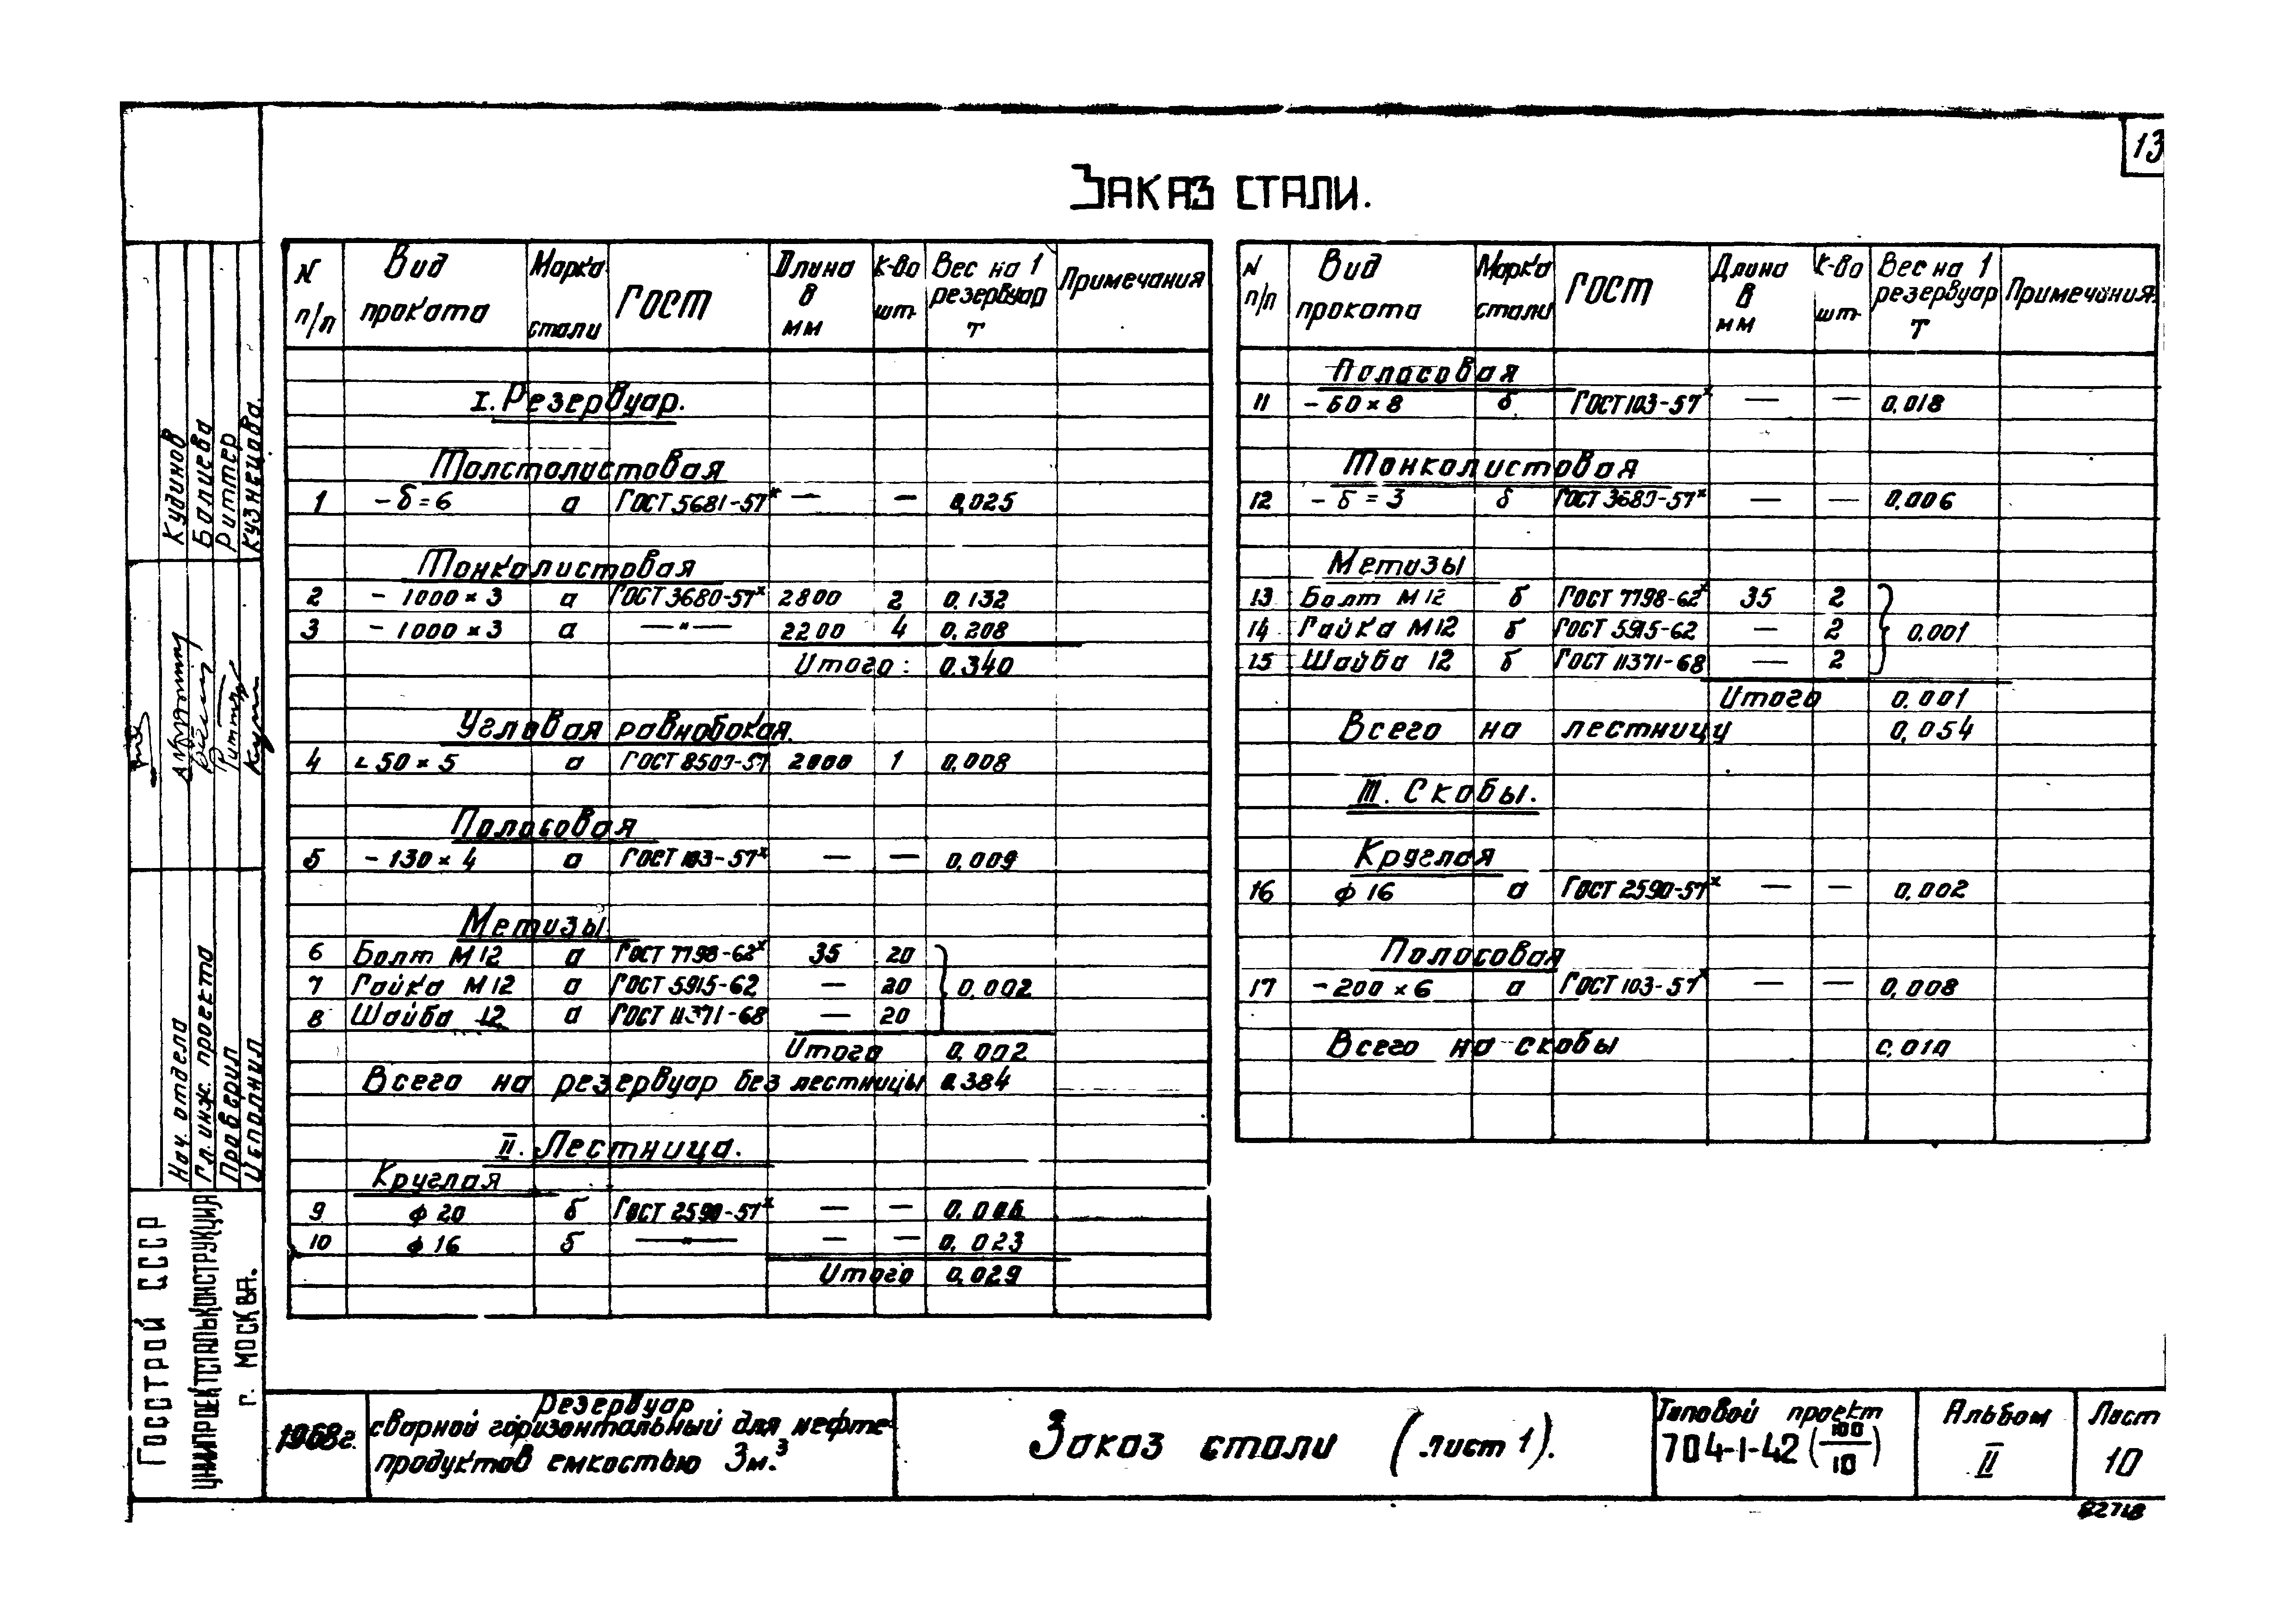 13
Заказ стали.
N п/п | Вид проката | Марка стали | ГОСТ | Длина в мм | К-во шт. | Вес на 1 резервуар т | Примечания
I. Резервуар.
Толстолистовая
1 | - δ = 6 | а | ГОСТ 5681-57ˣ | — | — | 0,025
Тонколистовая
2 | - 1000 × 3 | а | ГОСТ 3680-57ˣ | 2800 | 2 | 0,132
3 | - 1000 × 3 | а | —"— | 2200 | 4 | 0,208
Итого: 0,340
Угловая равнобокая.
4 | ∟ 50 × 5 | а | ГОСТ 8509-57 | 2000 | 1 | 0,008
Полосовая
5 | - 130 × 4 | а | ГОСТ 103-57ˣ | — | — | 0,009
Метизы
6 | Болт М12 | а | ГОСТ 7798-62ˣ | 35 | 20
7 | Гайка М12 | а | ГОСТ 5915-62 | — | 20 | 0,002
8 | Шайба 12 | а | ГОСТ 11371-68 | — | 20
Итого 0,002
Всего на резервуар без лестницы 0,384
II. Лестница.
Круглая
9 | ф 20 | б | ГОСТ 2590-57ˣ | — | — | 0,006
10 | ф 16 | б | —"— | — | — | 0,023
Итого 0,029
N п/п | Вид проката | Марка стали | ГОСТ | Длина в мм | К-во шт. | Вес на 1 резервуар т | Примечания
Полосовая
11 | - 60 × 8 | б | ГОСТ 103-57ˣ | — | — | 0,018
Тонколистовая
12 | - δ = 3 | б | ГОСТ 3680-57ˣ | — | — | 0,006
Метизы
13 | Болт М12 | б | ГОСТ 7798-62ˣ | 35 | 2
14 | Гайка М12 | б | ГОСТ 5915-62 | — | 2 | 0,001
15 | Шайба 12 | б | ГОСТ 11371-68 | — | 2
Итого 0,001
Всего на лестницу 0,054
III. Скобы.
Круглая
16 | ф 16 | а | ГОСТ 2590-57ˣ | — | — | 0,002
Полосовая
17 | - 200 × 6 | а | ГОСТ 103-57ˣ | — | — | 0,008
Всего на скобы 0,010
Госстрой СССР
ЦНИИПРОЕКТСТАЛЬКОНСТРУКЦИЯ
г. Москва.
Нач. отдела Кудинов
Гл. инж. проекта
Проверил Риттер
Исполнил Кузнецова.
1968г.
Резервуар
сварной горизонтальный для нефте-
продуктов емкостью 3м.³
Заказ стали (лист 1).
Типовой проект
704-1-42 (100/10)
Альбом
II
Лист
10